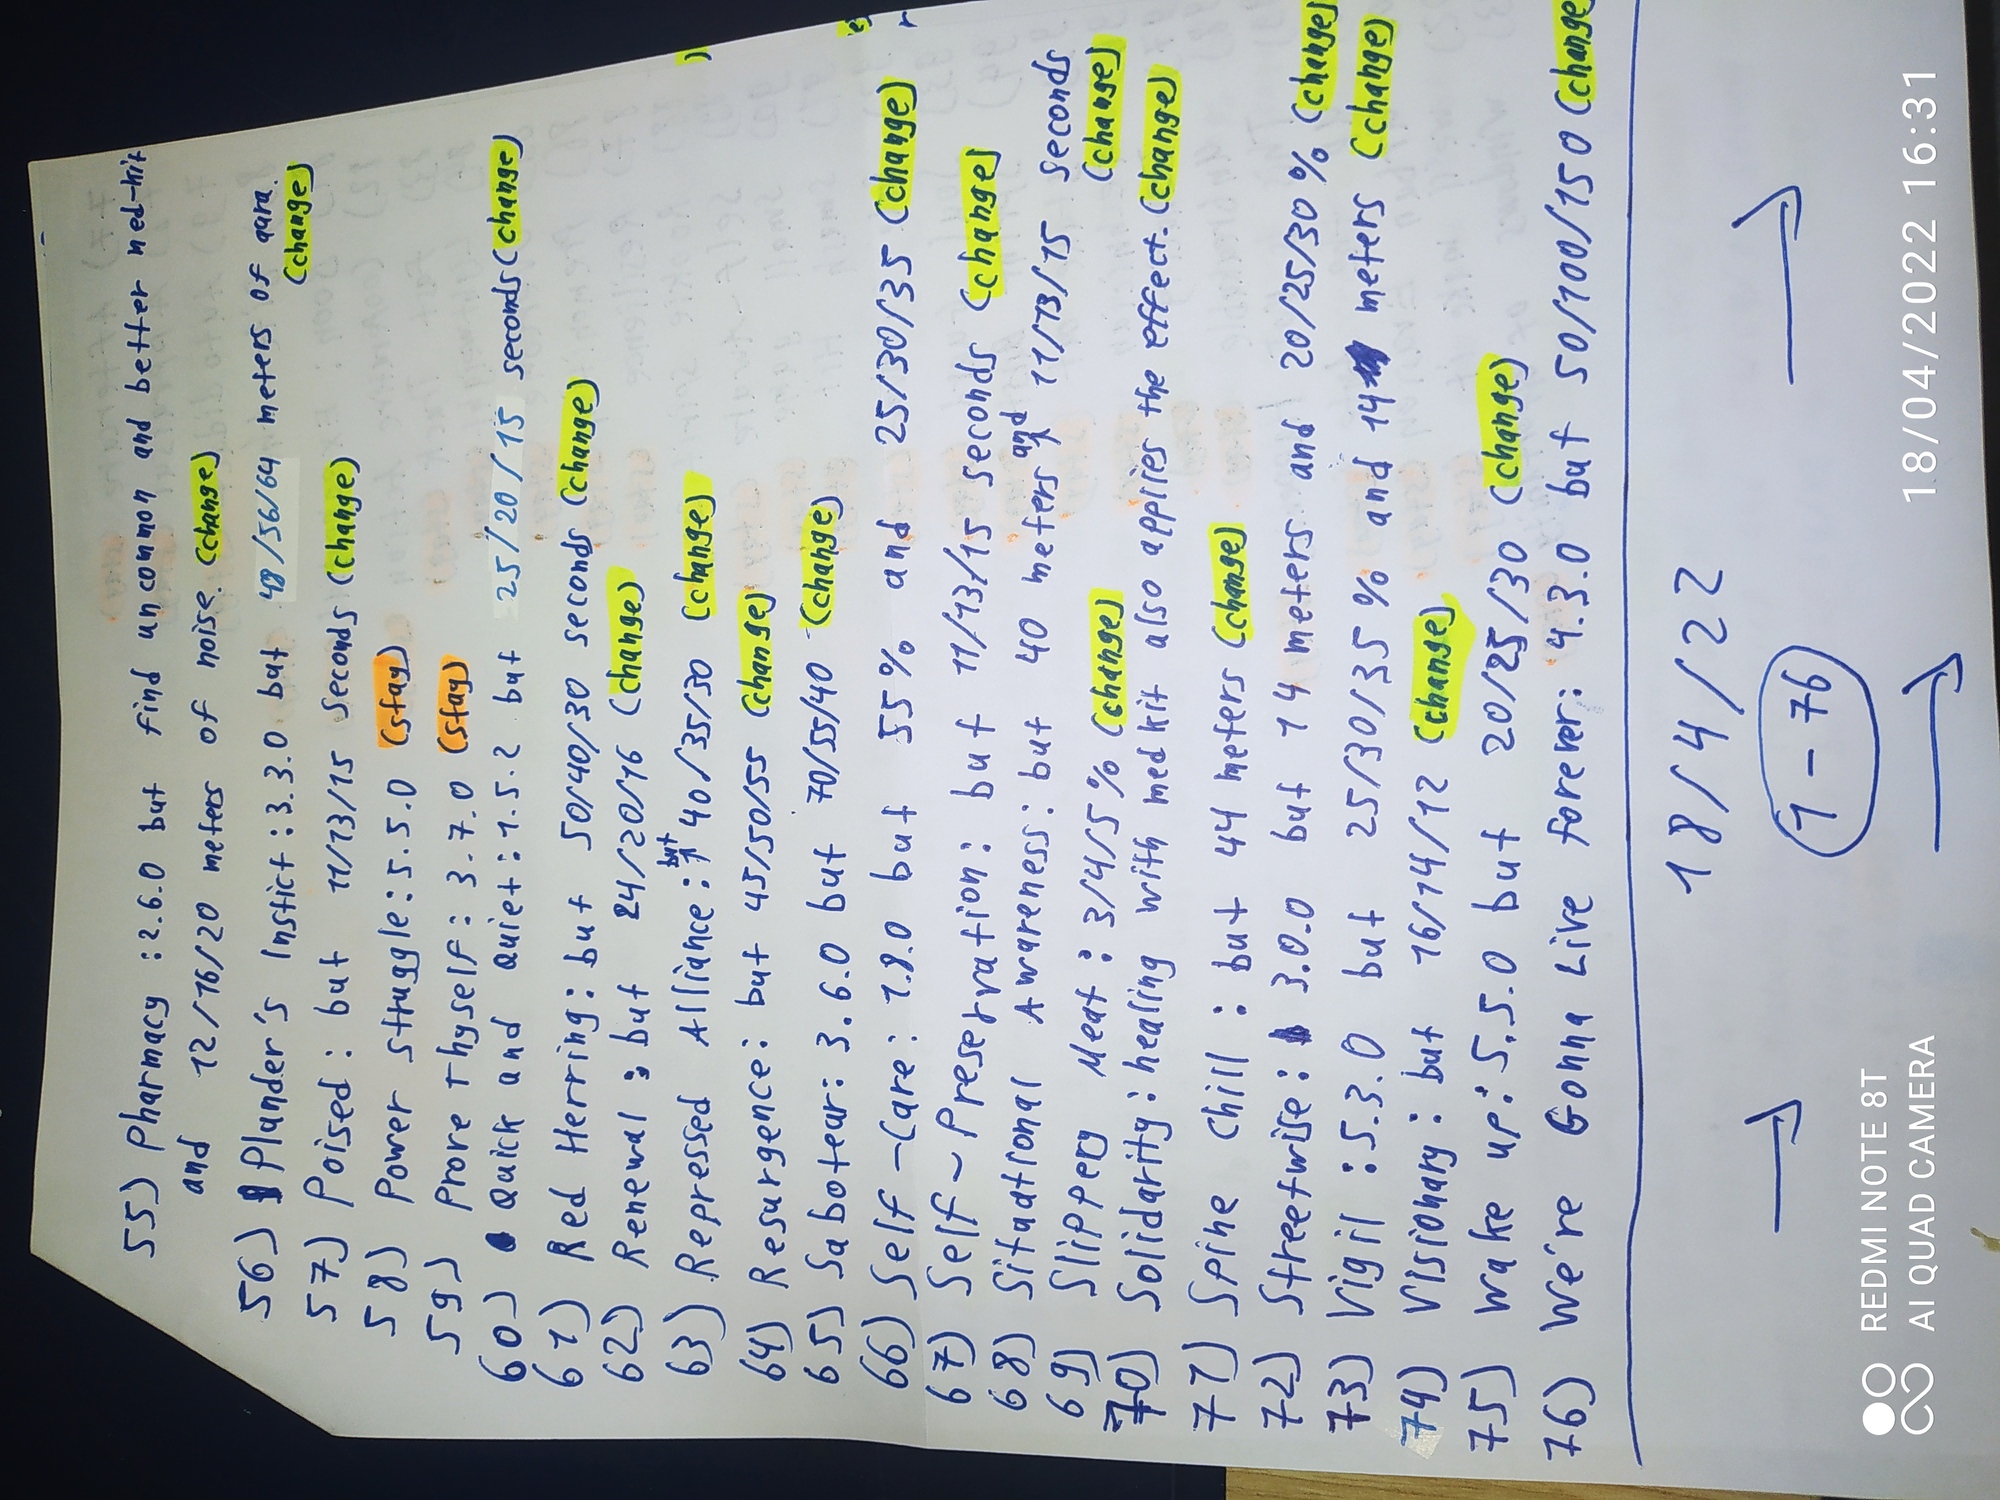 55) Pharmacy : 2.6.0 but find uncommon and better med-kit
and 12/16/20 meters of noise. (change)
56) Plunder's Instict : 3.3.0 but 48/56/64 meters of aura.
(change)
57) Poised : but 11/13/15 seconds (change)
58) Power struggle : 5.5.0 (stay)
59) Prove thyself : 3.7.0 (stay)
60) Quick and Quiet : 1.5.2 but 25/20/15 seconds (change)
61) Red Herring : but 50/40/30 seconds (change)
62) Renewal : but 24/20/16 (change)
63) Repressed Alliance : but 40/35/30 (change)
64) Resurgence : but 45/50/55 (change)
65) Saboteur : 3.6.0 but 70/55/40 (change)
66) Self-Care : 1.8.0 but 55% and 25/30/35 (change)
67) Self-Preservation : but 11/13/15 seconds (change)
68) Situational Awareness : but 40 meters and 11/13/15 seconds
(change)
69) Slippery Meat : 3/4/5% (change)
70) Solidarity : healing with medkit also applies the effect. (change)
71) Spine Chill : but 44 meters (change)
72) Streetwise : 3.0.0 but 14 meters and 20/25/30% (change)
73) Vigil : 5.3.0 but 25/30/35% and 14 meters (change)
74) Visionary : but 16/14/12 (change)
75) Wake up : 5.5.0 but 20/25/30 (change)
76) We're Gonna Live forever : 4.3.0 but 50/100/150 (change)
18/4/22
1-76
REDMI NOTE 8T
AI QUAD CAMERA
18/04/2022 16:31